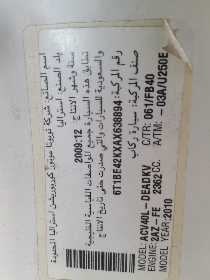 اسم الصانع: شركة تويوتا موتور كوربوريشن استراليا المحدودة
بلد الصنع: استراليا
سنة وشهر الانتاج 2009:12
تطابق هذه السيارة جميع المواصفات القياسية الخليجية
والسعودية للسيارات والتى صدرت حتى تاريخ الانتاج
رقم المركبة: 6T1BE42KXAX638894
صنف المركبة: سيارة ركاب
C/TR: 061/FB40
A/TM: -03A/U250E
MODEL: ACV40L-DEARKV
ENGINE: 2AZ-FE 2362 CC.
MODEL YEAR:2010